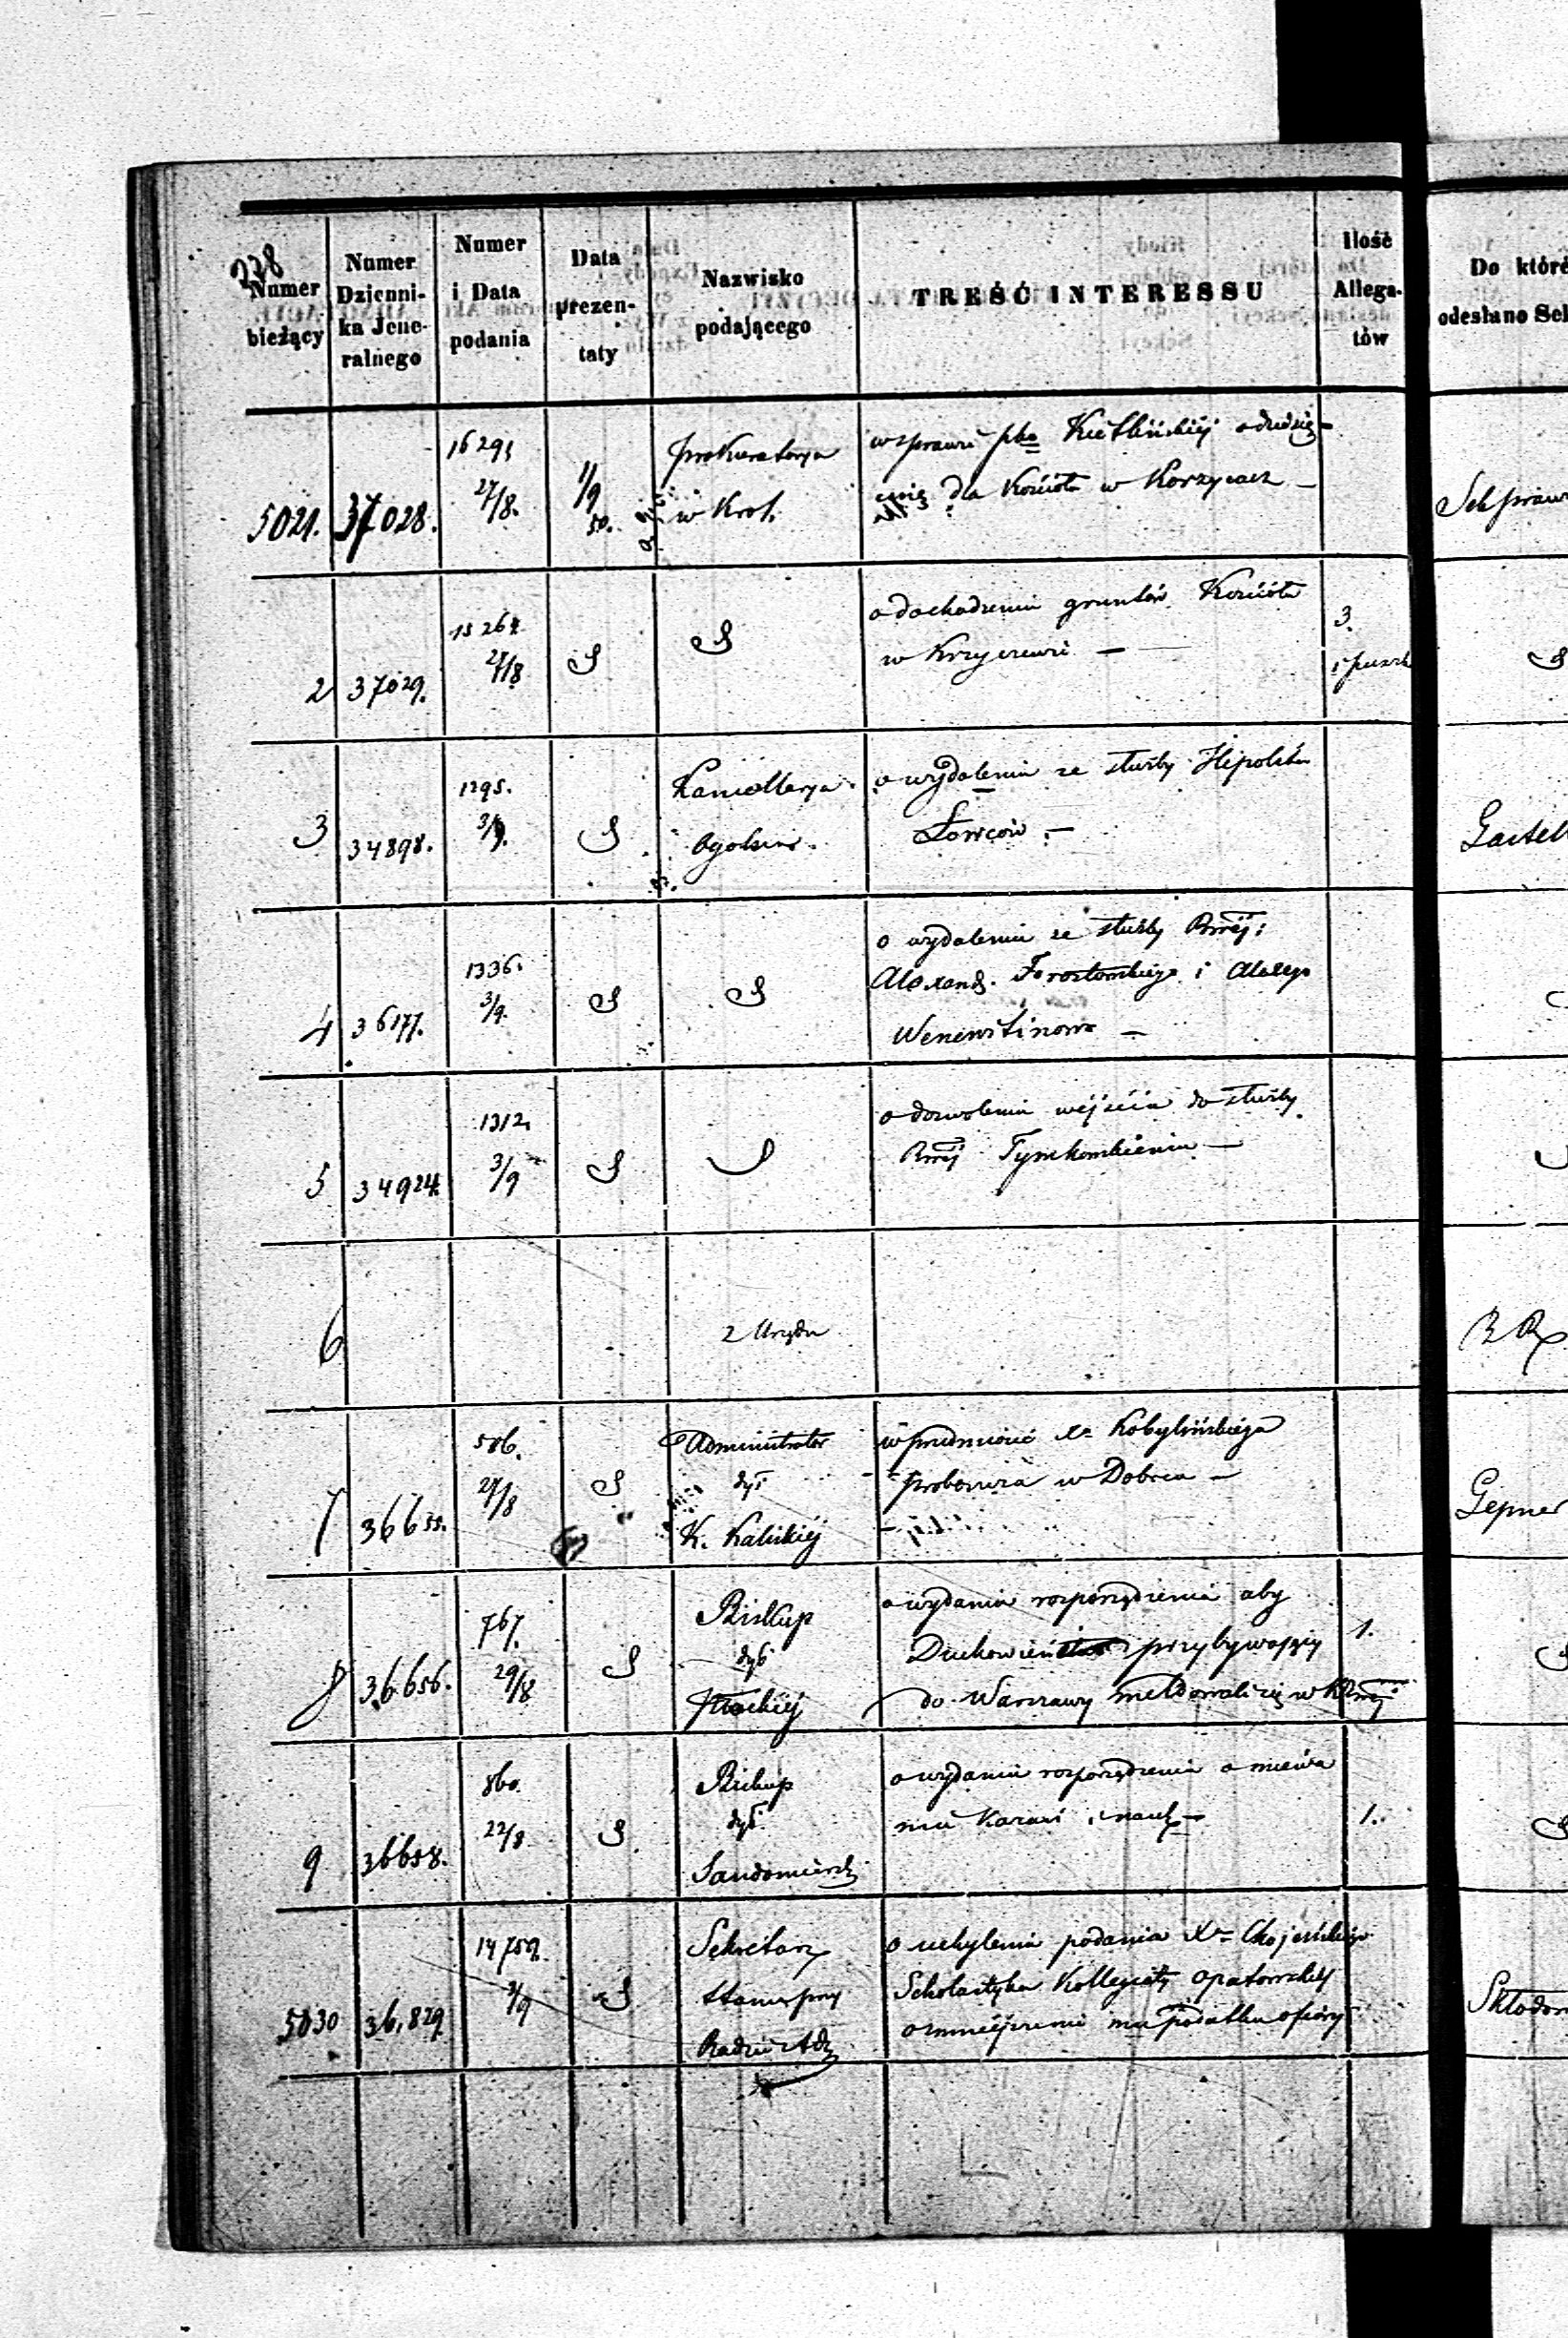 338
Numer bieżący
Numer Dzienni- ka Jene- ralnego
Numer i Data podania
Data prezen- taty
Nazwisko podającego
TREŚĆ INTERESSU
Ilość Allega- tów
Do któré
odesłano Sek
5021. 37028. 16291 27/8. 1/9 50. Prokuratorya w Krol.
w sprawie pko Kietlińskiej o dziedzic-
dla Kościoła w Korzycach -
2 37029. 15264 27/8 S S
o dochodzeniu gruntów Kościoła
w Krzyczewie -
3.
3 34898. 1295. 3/9. S Kancellarya Ogolna.
o wydaleniu ze służby Hipolita
4 36177. 1336. 3/9. S S
o wydaleniu ze służby
Alexand. i Alexego
Wenewitinowa -
5 34924. 1312. 3/9 S S
o dozwoleniu wejścia do służby
6 z Urzędu
7 36655. 506. 27/8 S Administrator dyi K. Kaliskiéj
w przedmiocie Xa Kobylińskiego
proboszcza w Dobrcu -
Gepner
8 36656. 767. 29/8 S Biskup dyi Płockiéj
o wydanie rozporządzenia aby
przybywający
do Warszawy meldowali się w
1.
9 36658. 860. 22/8 S Biskup dyi Sandomiersk
o wydanie rozporządzenia o miewa
niu Kazań i nauk -
1.
5030 36,829 14759. 3/9 S Sekretarz Stanu przy Radzie Adm
o uchyleniu podania Xa
Scholastyka Kollegiaty Opatowskiéj
o zmniejszenie mu podatku ofiary